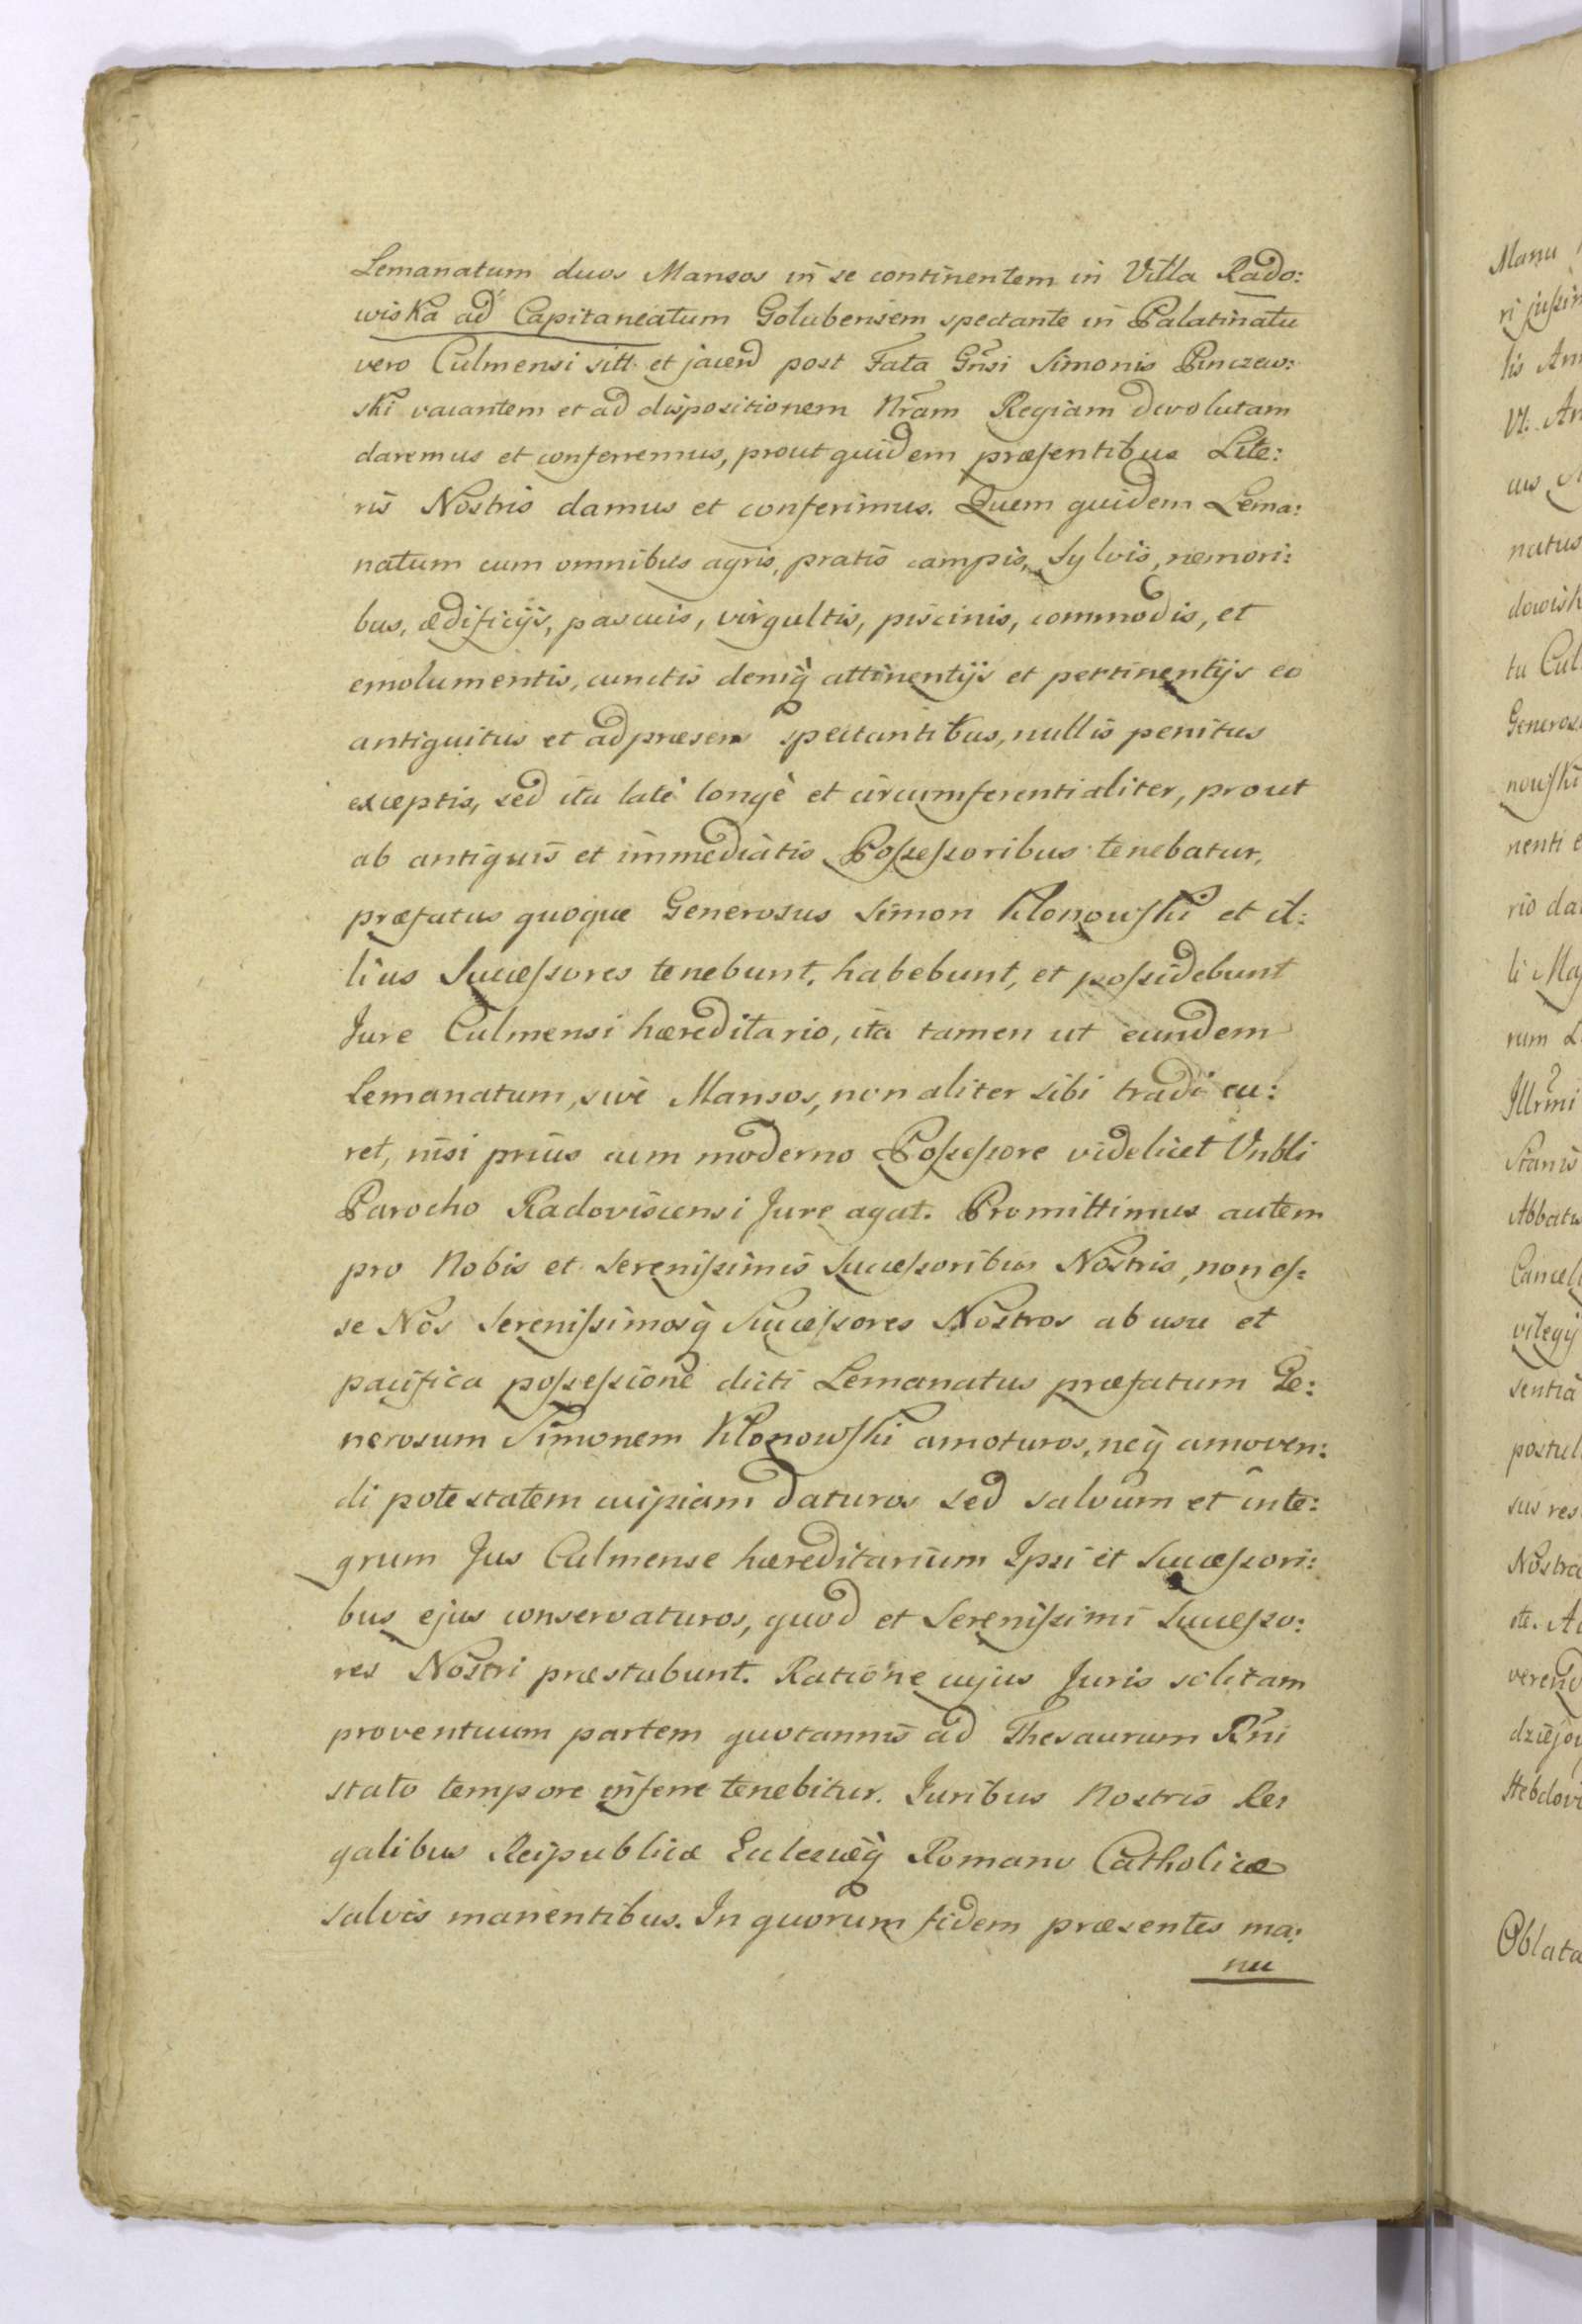 Lemanatum duos Mansos in se continentem in Villa Rado:
wiska ad Capitaneatum Golubensem spectante in Palatinatu
vero Culmensi sitt. et jacend post Fata Gnsi Simonis Pinczew:
ski vacantem et ad dispositionem Nram Regiam devolutam
daremus et conferremus, prout quidem præsentibus Lite:
ris Nostris damus et conferimus. Quem quidem Lema:
natum cum omnibus agris, pratis campis, Sylvis, nemori:
bus, ædificijs, pascuis, virgultis, piscinis, commodis, et
emolumentis, cunctis deniq̀ attinentijs et pertinentijs eo
antiquitus et ad præsens spectantibus, nullis penitus
exceptis, sed ita latè longè et circumferentialiter, prout
ab antiquis et immediatis Possessoribus tenebatur,
præfatus quoque Generosus Simon Klonowski et il:
lius Successores tenebunt, habebunt, et possidebunt
Jure Culmensi hæreditario, ita tamen ut eundem
Lemanatum, sive Mansos, non aliter sibi tradi cu:
ret, nisi prius cum moderno Possessore videlicet Vnbli
Parocho Radoviscensi Jure agat. Promittimus autem
pro Nobis et Serenissimis Successoribus Nostris, non es:
se Nos Serenissimosq̀ Successores Nostros ab usu et
pacifica possessione dicti Lemanatus præfatum Ge:
nerosum Simonem Klonowski amoturos, neq̀ amoven:
di potestatem cuipiam daturos sed salvum et inte:
grum Jus Culmense hæreditarium Ipsi et Successori:
bus ejus conservaturos, quod et Serenissimi Successo:
res Nostri præstabunt. Ratione cujus Juris solitam
proventuum partem quotannis ad Thesaurum Rni
stato tempore inferre tenebitur. Juribus Nostris Re:
galibus Reipublicæ Eclesiæq̀ Romano Catholicæ
salvis manentibus. In quorum fidem præsentes ma:
nu